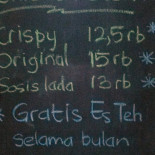 Crispy 12,5 rb
Original 15 rb
Sosis lada 13 rb
* Gratis Es Teh *
selama bulan